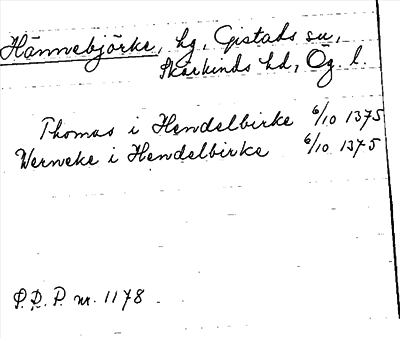 Hännebjörke, hg, Gistads sn,
Skärkinds hd, Ög. l.
Thomas i Hendelbirke 6/10 1375
Werneke i Hendelbirke 6/10 1375
S.D.P. nr. 1178